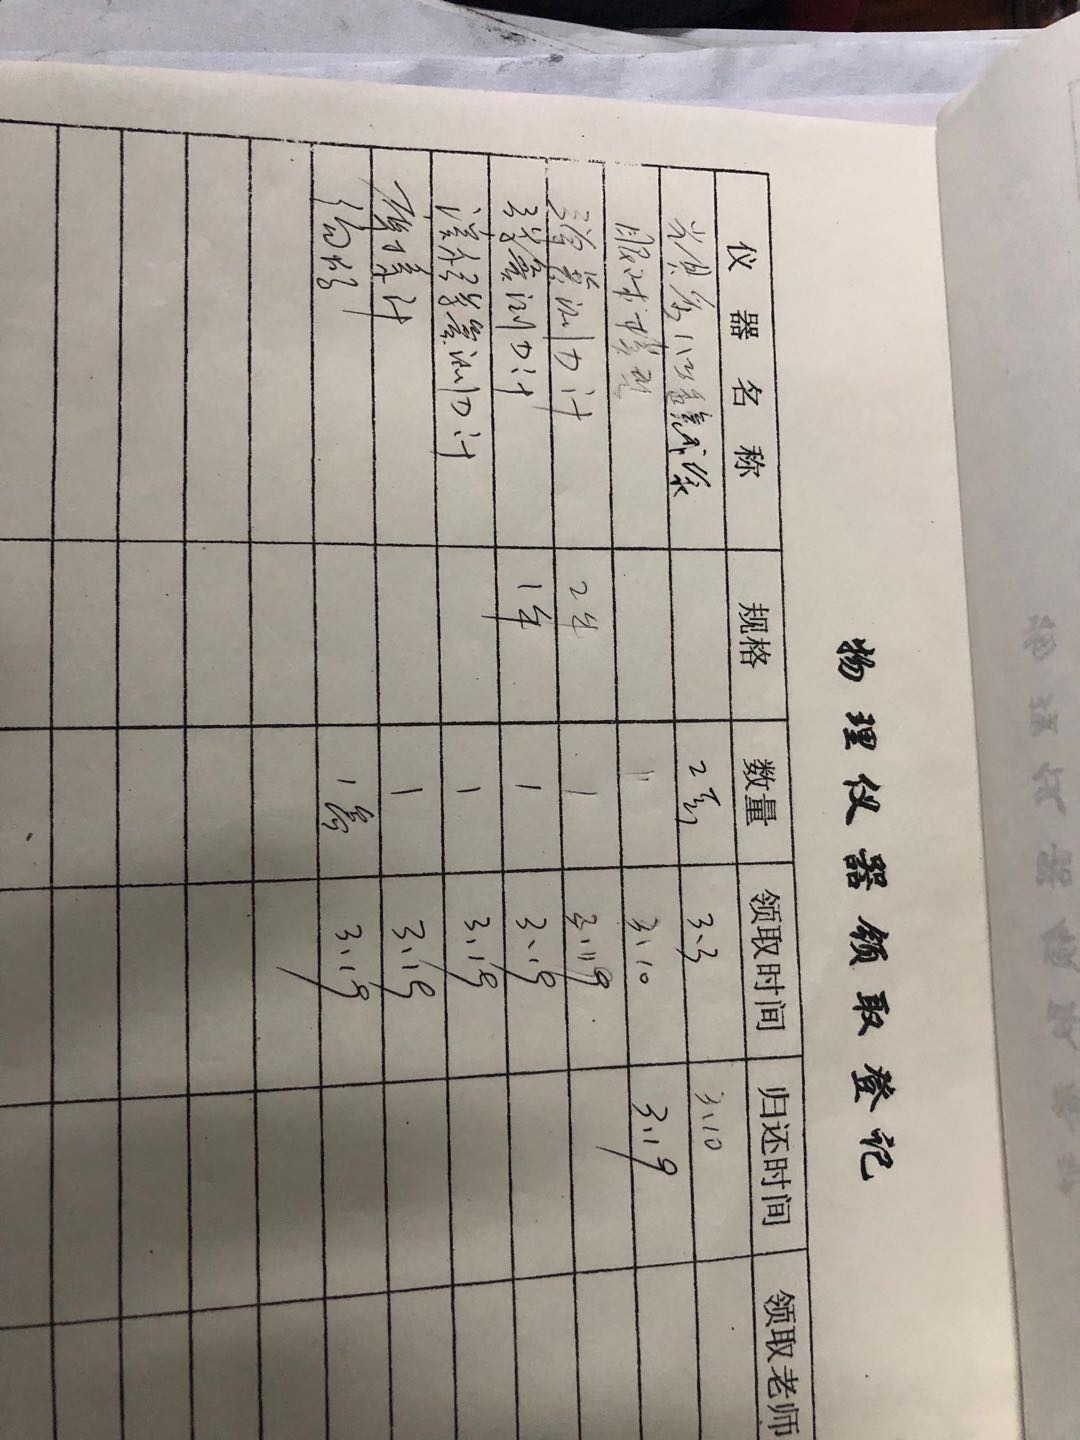 物理仪器领取登记
仪器名称 规格 数量 领取时间 归还时间 领取老师
光具座 2套 3.3 3.10
眼球模型 1 3.10 3.19
弹簧测力计 2牛 1 3.19
弹簧测力计 1牛 1 3.19
演示弹簧测力计 1 3.19
摩擦计 1 3.19
1 3.19